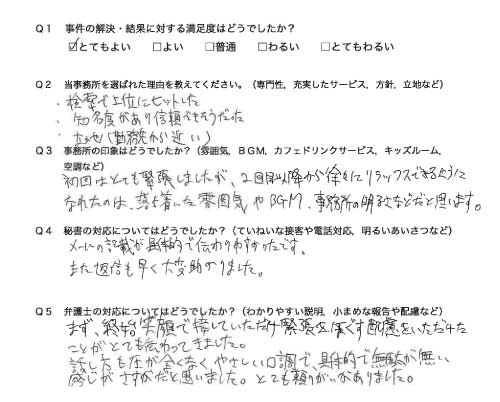 Q1 事件の解決・結果に対する満足度はどうでしたか？
☑とてもよい □よい □普通 □わるい □とてもわるい
Q2 当事務所を選ばれた理由を教えてください。（専門性，充実したサービス，方針，立地など）
・検索で上位にヒットした
・知名度があり信頼できそうだった
・立地（勤務先から近い）
Q3 事務所の印象はどうでしたか？（雰囲気，ＢＧＭ，カフェドリンクサービス，キッズルーム，
空調など）
初回はとても緊張しましたが、2回目以降から徐々にリラックスできるように
なれたのは、落ち着いた雰囲気やBGM、事務所の明るさなどだと思います。
Q4 秘書の対応についてはどうでしたか？（ていねいな接客や電話対応，明るいあいさつなど）
メールの記載が具体的で伝わりやすかったです。
また返信も早く大変助かりました。
Q5 弁護士の対応についてはどうでしたか？（わかりやすい説明，小まめな報告や配慮など）
まず、終始笑顔で接していただけ緊張をほぐす配慮をいただけた
ことがとても伝わってきました。
話し方も圧が全くなく、やさしい口調で、具体的で無駄が無い
感じがさすがだと思いました。とても頼りがいがありました。